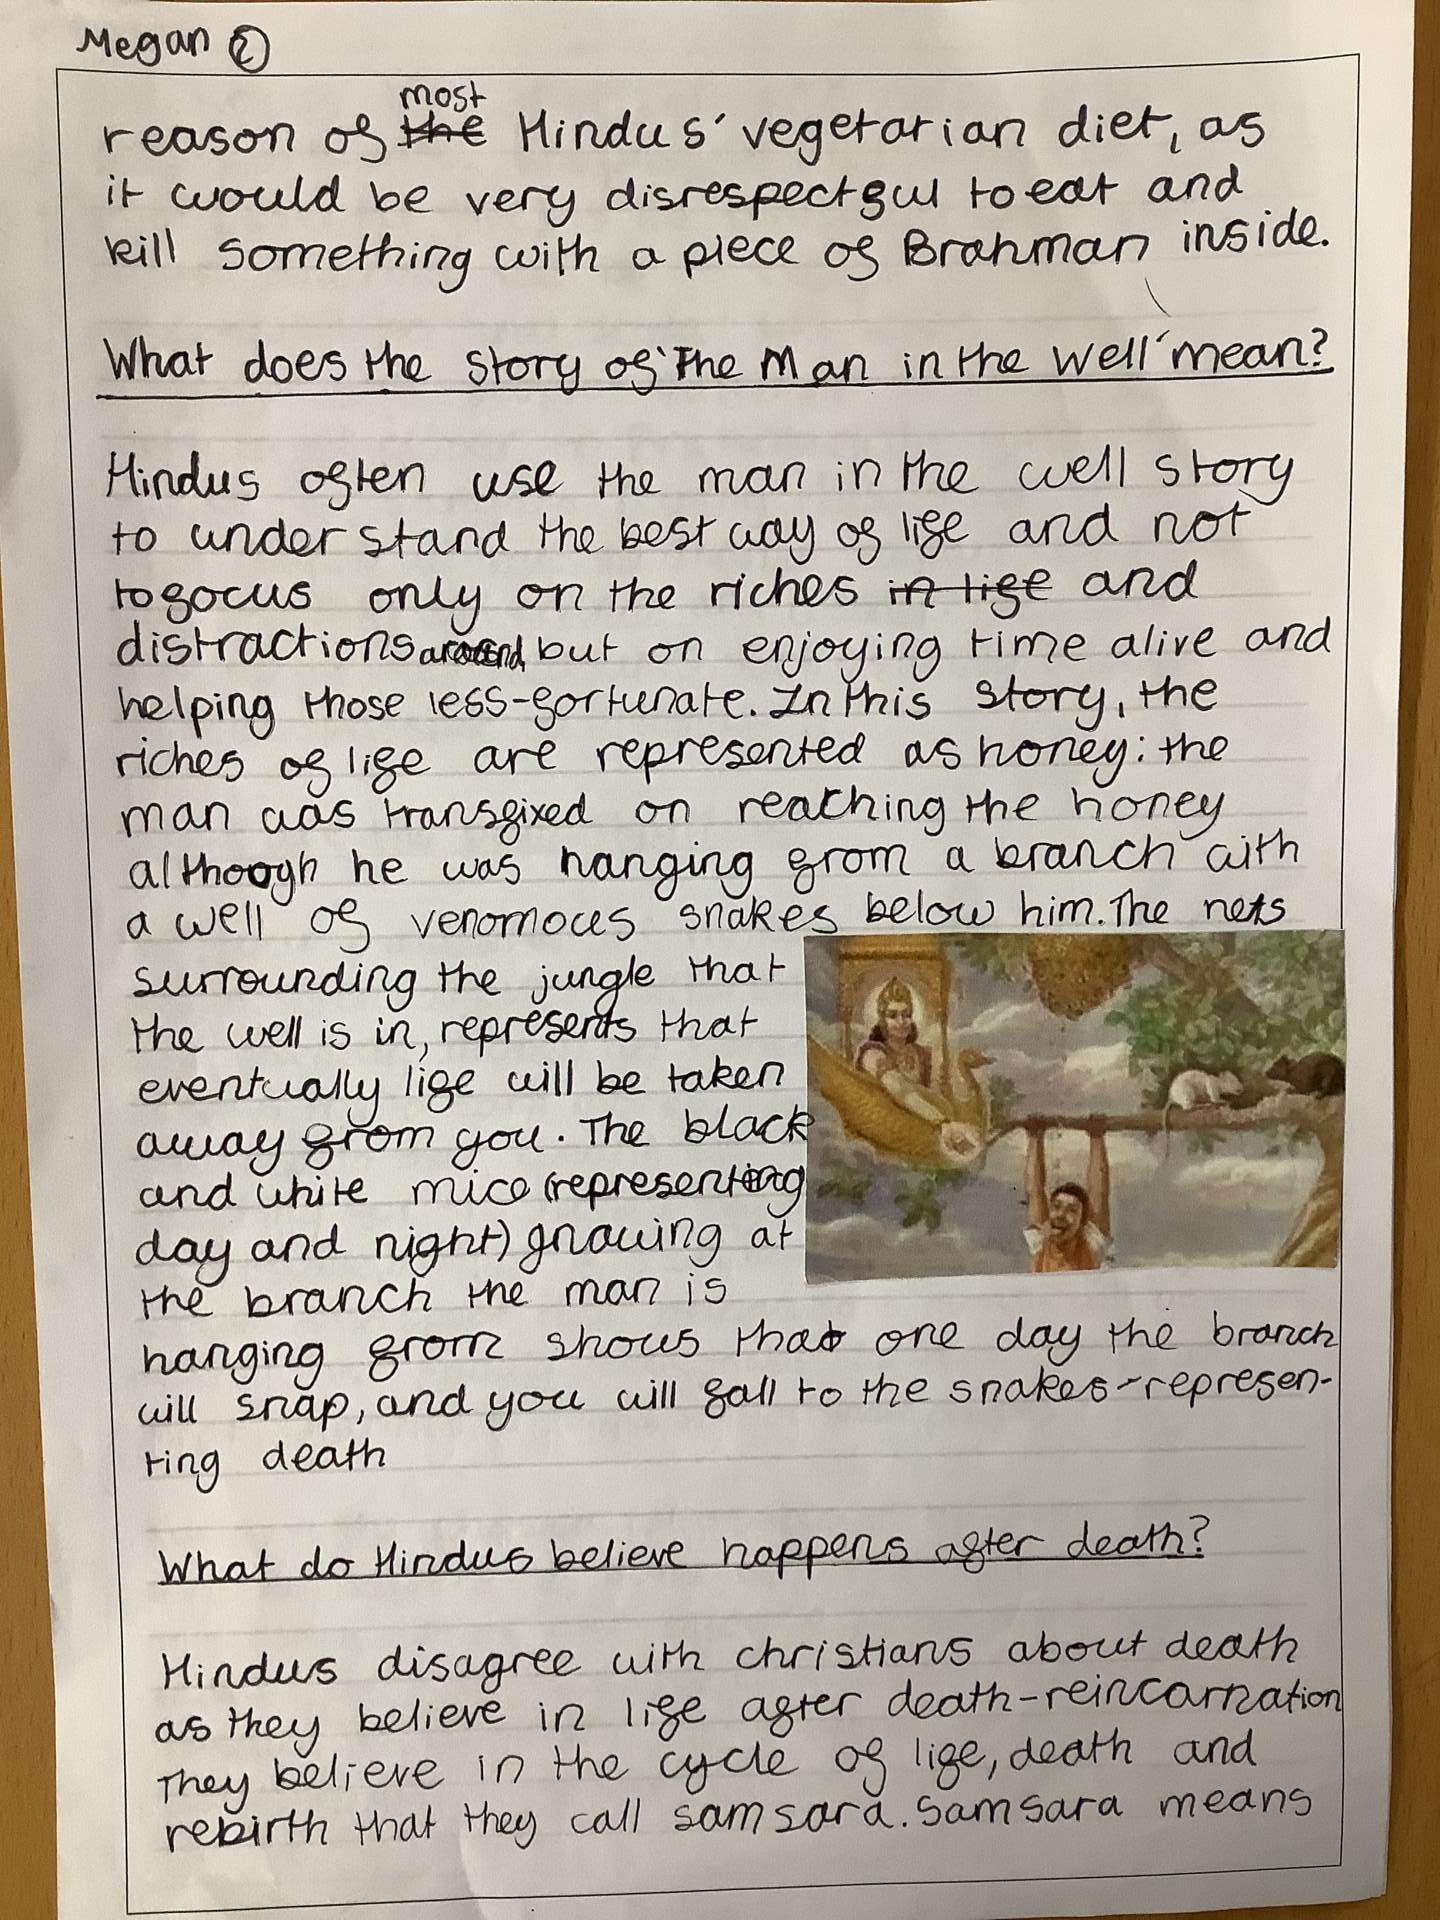 Megan 2
most
reason of the Hindus' vegetarian diet, as
it would be very disrespectful to eat and
kill something with a piece of Brahman inside.
What does the story of 'The Man in the Well' mean?
Hindus often use the man in the well story
to understand the best way of life and not
to focus only on the riches in life and
distractions around, but on enjoying time alive and
helping those less-fortunate. In this story, the
riches of life are represented as honey: the
man was transfixed on reaching the honey
although he was hanging from a branch with
a well of venomous snakes below him. The nets
surrounding the jungle that
the well is in, represents that
eventually life will be taken
away from you. The black
and white mice (representing
day and night) gnawing at
the branch the man is
hanging from shows that one day the branch
will snap, and you will fall to the snakes-represen-
ting death
What do Hindus believe happens after death?
Hindus disagree with christians about death
as they believe in life after death-reincarnation
They believe in the cycle of life, death and
rebirth that they call samsara. Samsara means